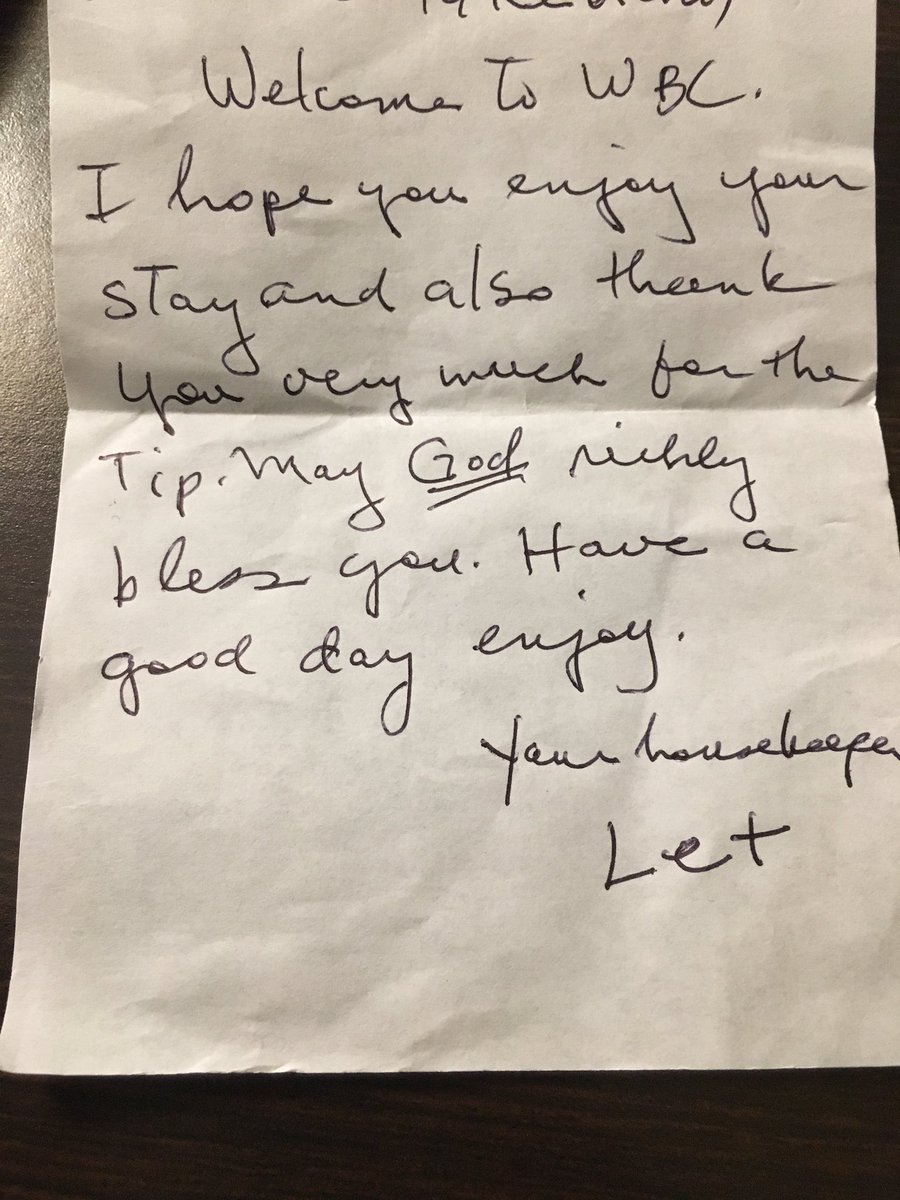 Welcome To WBC.
I hope you enjoy your
stay and also thank
you very much for the
Tip. May God richly
bless you. Have a
good day enjoy.
Your housekeeper
Let